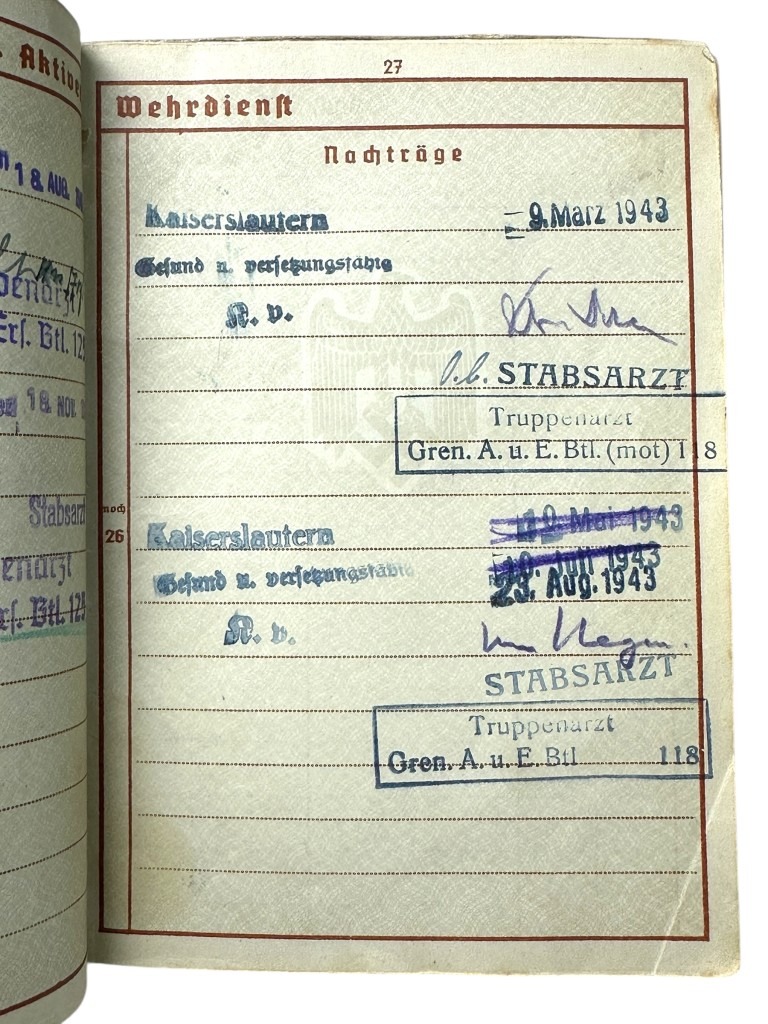 Aktive
18. AUG.
Ers. Btl. 125
18. NOV.
Stabsarzt
Btl. 125
27
Wehrdienst
Nachträge
Kaiserslautern 9. März 1943
Gesund u. versetzungsfähig
K. v.
STABSARZT
Truppenarzt
Gren. A. u. E. Btl. (mot) 118
noch
26
Kaiserslautern 12. Mai 1943
Juli 1943
Gesund u. versetzungsfähig 23. Aug. 1943
K. v.
STABSARZT
Truppenarzt
Gren. A. u. E. Btl 118